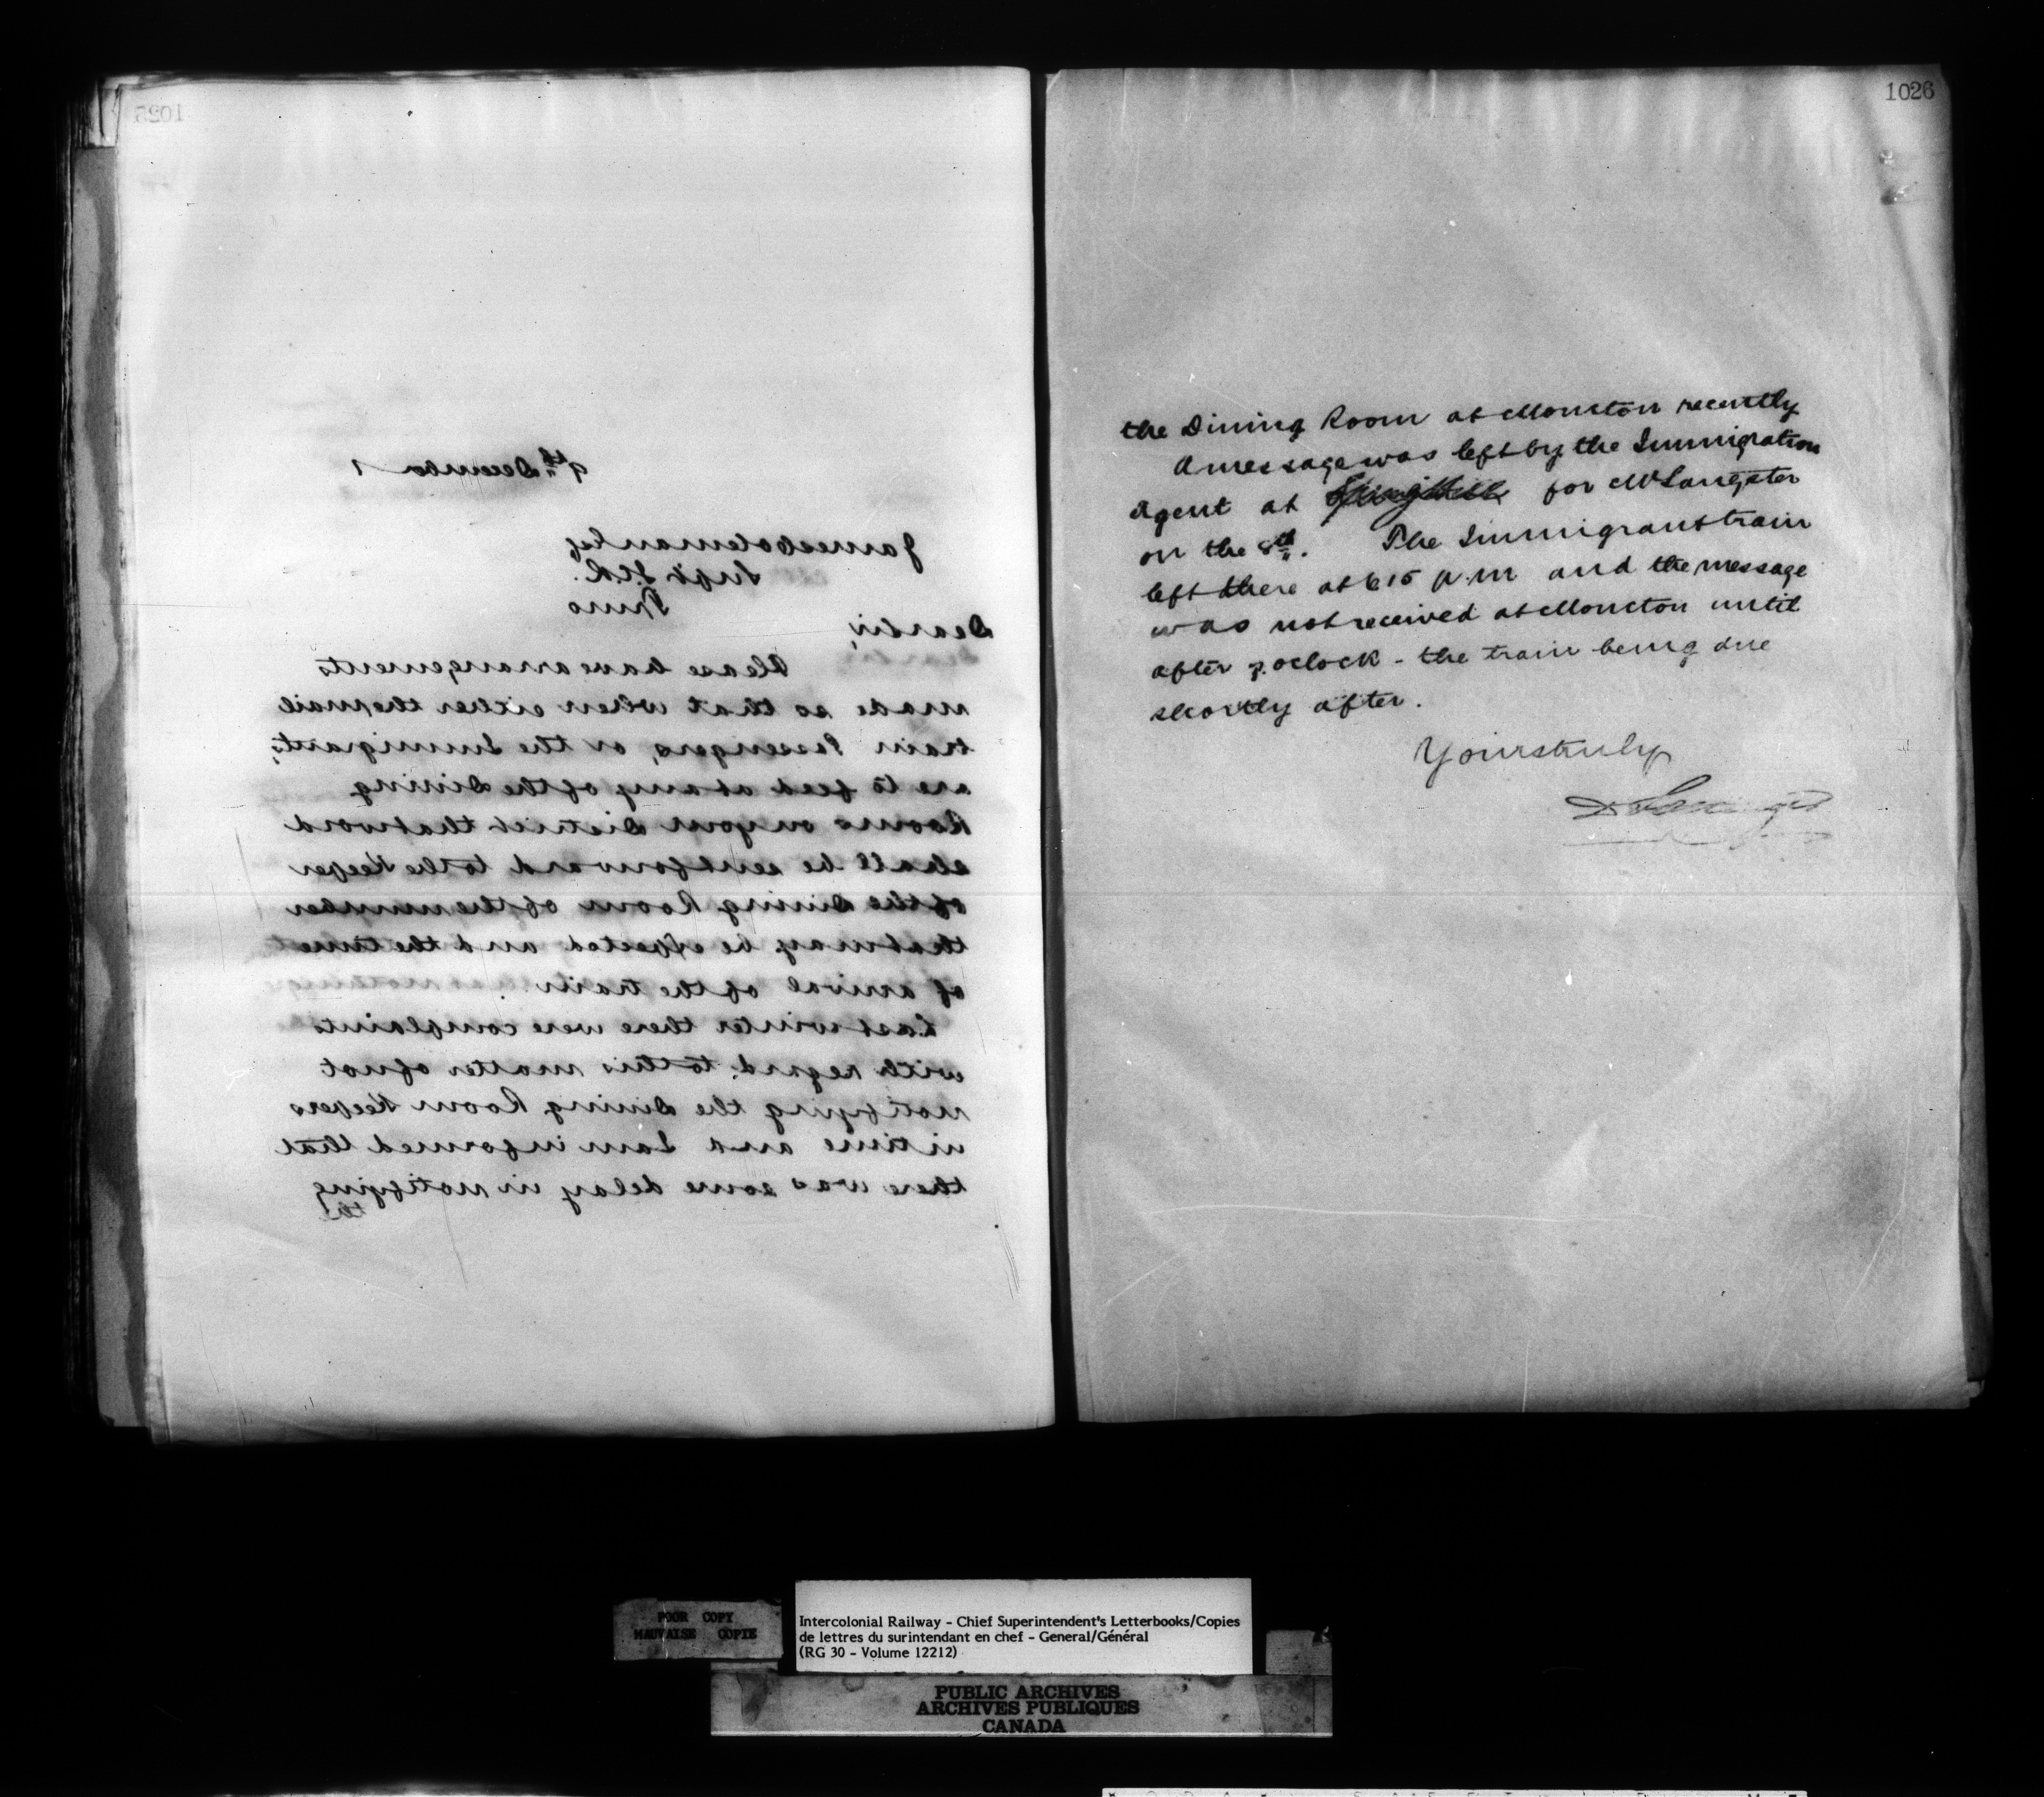 1025
9th December 1
James Coleman Esq
Supt I.C.R.
Truro
Dear Sir,
Please have arrangements
made so that when either the mail
train Passengers, or the Immigrants,
are to feed at any of the Dining
Rooms on your District that word
shall be sent forward to the Keeper
of the Dining Room of the number
that may be expected and the time
of arrival of the train.
Last winter there were complaints
with regard to this matter of not
notifying the Dining Room Keepers
in time and I am informed that
there was some delay in notifying
the
1026
the Dining Room at Moncton recently
A message was left by the Immigration
Agent at for Mr Sangster
on the 8th. The Immigrant train
left there at 6 15 p.m and the message
was not received at Moncton until
after 7. oclock - the train being due
shortly after.
Yours truly
POOR COPY
MAUVAISE COPIE
Intercolonial Railway - Chief Superintendent's Letterbooks/Copies
de lettres du surintendant en chef - General/Général
(RG 30 - Volume 12212)
PUBLIC ARCHIVES
ARCHIVES PUBLIQUES
CANADA